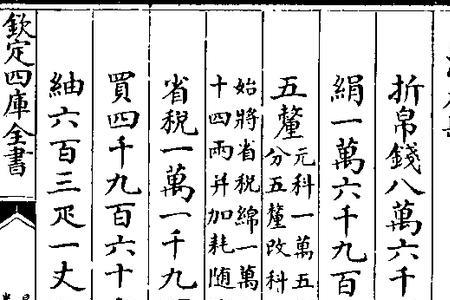 折帛錢八萬六千
絹一萬六千九百
五釐元科一萬五
分五釐改科
始將省税綿一萬
十四兩并加耗随
省税一萬一千九
買四千九百六十
紬六百三疋一丈
欽定四庫全書